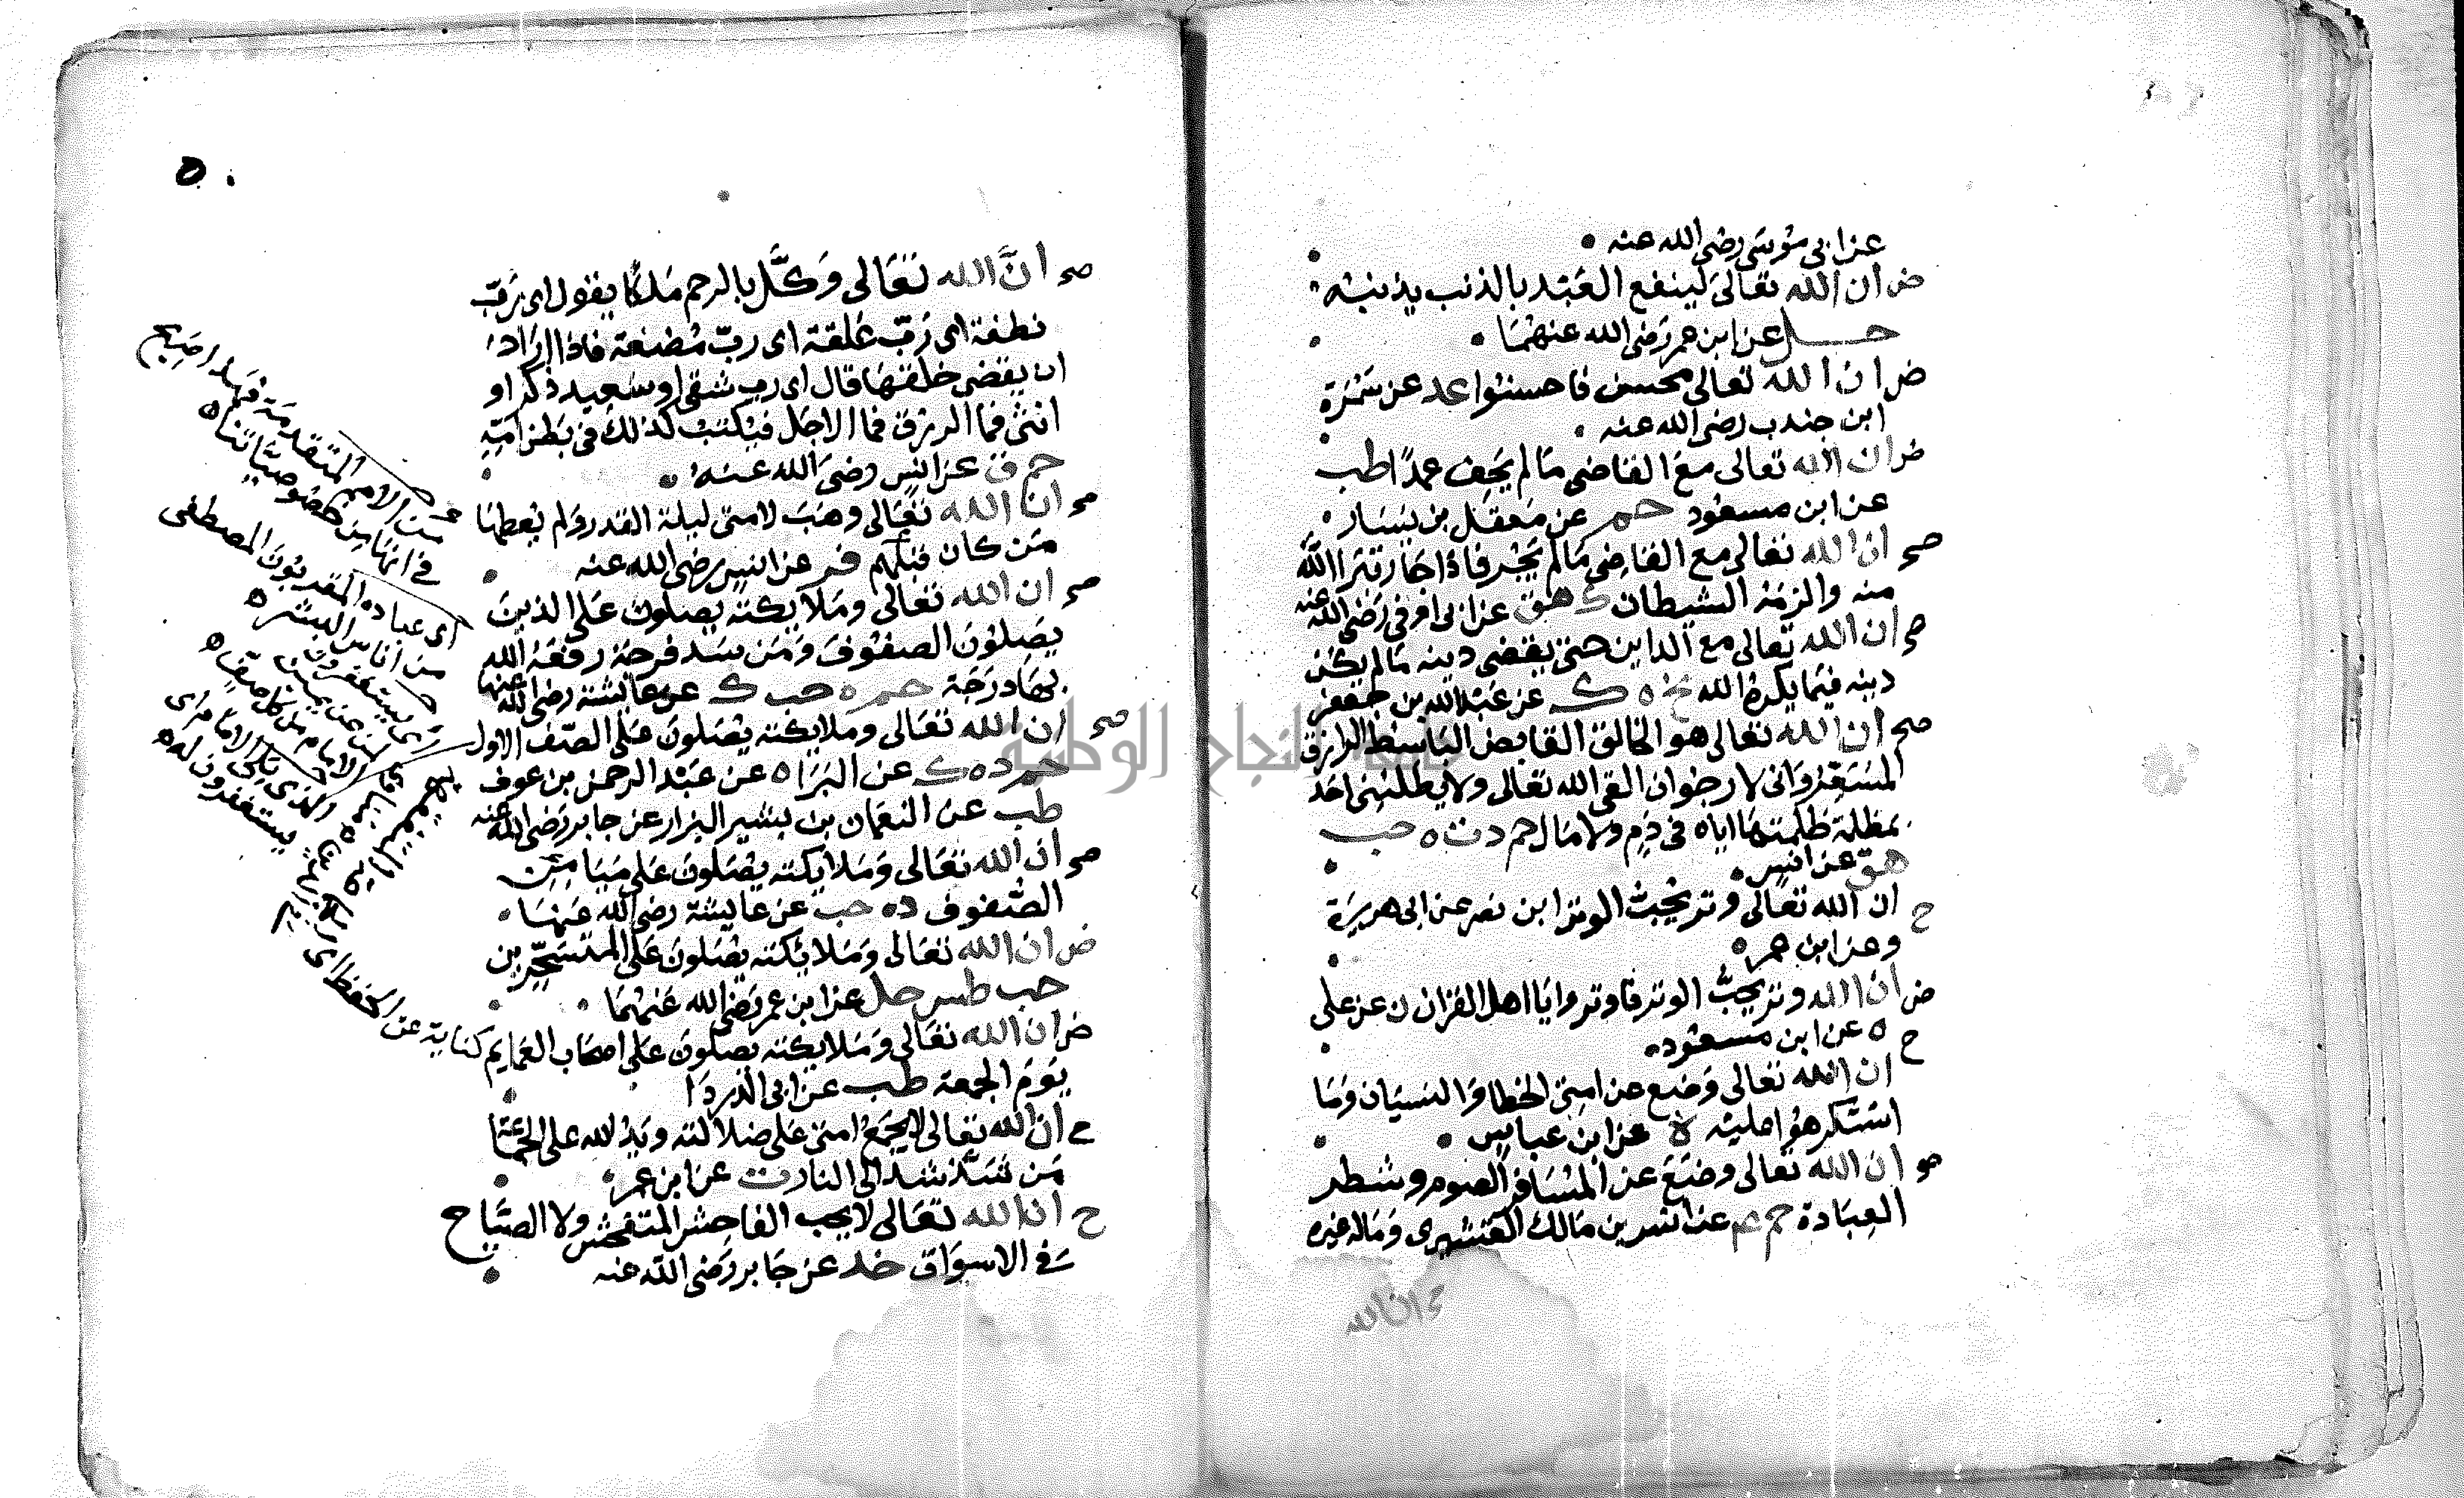 عن ابي موسى رضى الله عنه
ض ان الله تعالى لينفع العبد بالذنب يذنبه
حل عن ابن عمر رضى الله عنهما
ض ان الله تعالى محسن فاحسنوا عد عن سمرة
ابن جندب رضى الله عنه
ض ان الله تعالى مع القاضى ما لم يحف عمدا طب
عن ابن مسعود حم عن معقل بن يسار
صح ان الله تعالى مع القاضى ما لم يجر فاذا جار تبرا الله
منه والزمه الشيطان ك هق عن ابى اوفى رضى الله عنه
صح ان الله تعالى مع الداين حتى يقضى دينه ما لم يكن
دينه فيما يكره الله تخ ه ك عن عبد الله بن جعفر
صح ان الله تعالى هو الخالق القابض الباسط الرازق
المسعر وانى لارجوا ان القى الله تعالى ولا يطلبنى احد
بمظلمة ظلمتها اياه فى دم ولا مال حم د ت ه حب
هق عن انس
ح ان الله تعالى وتر يحب الوتر ابن نصر عن ابى هريرة
وعن ابن عمر
ض ان الله وتر يحب الوتر فاوتروا يا اهل القران ن عن على
ه عن ابن مسعود
ح ان الله تعالى وضع عن امتى الخطا والنسيان وما
استكرهوا عليه ه عن ابن عباس
صح ان الله تعالى وضع عن المسافر الصوم وشطر
العبادة حم عن انس بن مالك القشيرى وماله غيره
ح ان الله
٥٠
صح ان الله تعالى وكل بالرحم ملكا يقول اى رب
نطفة اى رب علقة اى رب مضغة فاذا اراد
ان يقضى خلقها قال اى رب شقى او سعيد ذكر او
انثى فما الرزق فما الاجل فيكتب كذلك فى بطن امه
حم ق عن انس رضى الله عنه
صح ان الله تعالى وهب لامتى ليلة القدر ولم يعطها
من كان قبلهم فر عن انس رضى الله عنه
صح ان الله تعالى وملايكته يصلون على الذين
يصلون الصفوف ومن سد فرجة رفعه الله
بها درجة حم ه حب ك عن عايشة رضى الله عنها
صح ان الله تعالى وملايكته يصلون على الصف الاول
حم د ه ك عن البرا ه عن عبد الرحمن بن عوف
طب عن النعمان بن بشير البزار عن جابر رضى الله عنه
صح ان الله تعالى وملايكته يصلون على ميامن
الصفوف د ه حب عن عايشة رضى الله عنها
ض ان الله تعالى وملائكته يصلون على المتسحرين
حب طس حل عن ابن عمر رضى الله عنهما
ض ان الله تعالى وملايكته يصلون على اصحاب العمايم
يوم الجمعة طب عن ابى الدردا
ح ان الله تعالى لا يجمع امتى على ضلالته ويد الله على الجماعة
من شذ شذ الى النار ت عن ابن عمر
ح ان الله تعالى لا يحب الفاحش المتفحش ولا الصياح
فى الاسواق خد عن جابر رضى الله عنه
من الامم المتقدمة فهذا صريح
فى انها من خصوصياتنا ه
اى عباده المقربون المصطفى
من اناس البشر ه
اى يستغفرون
لمن عن يمين
الامام من كل صف ه
الذى يلى الامام اى
يستغفرون له ه
كناية عن الحفظ اى
جامعة النجاح الوطنية